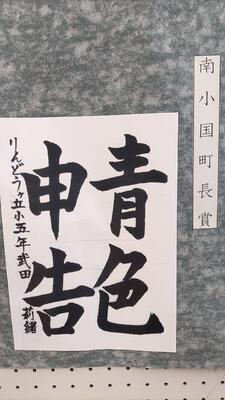 南小国町長賞
青色
申告
りんどうヶ丘小五年武田莉緒